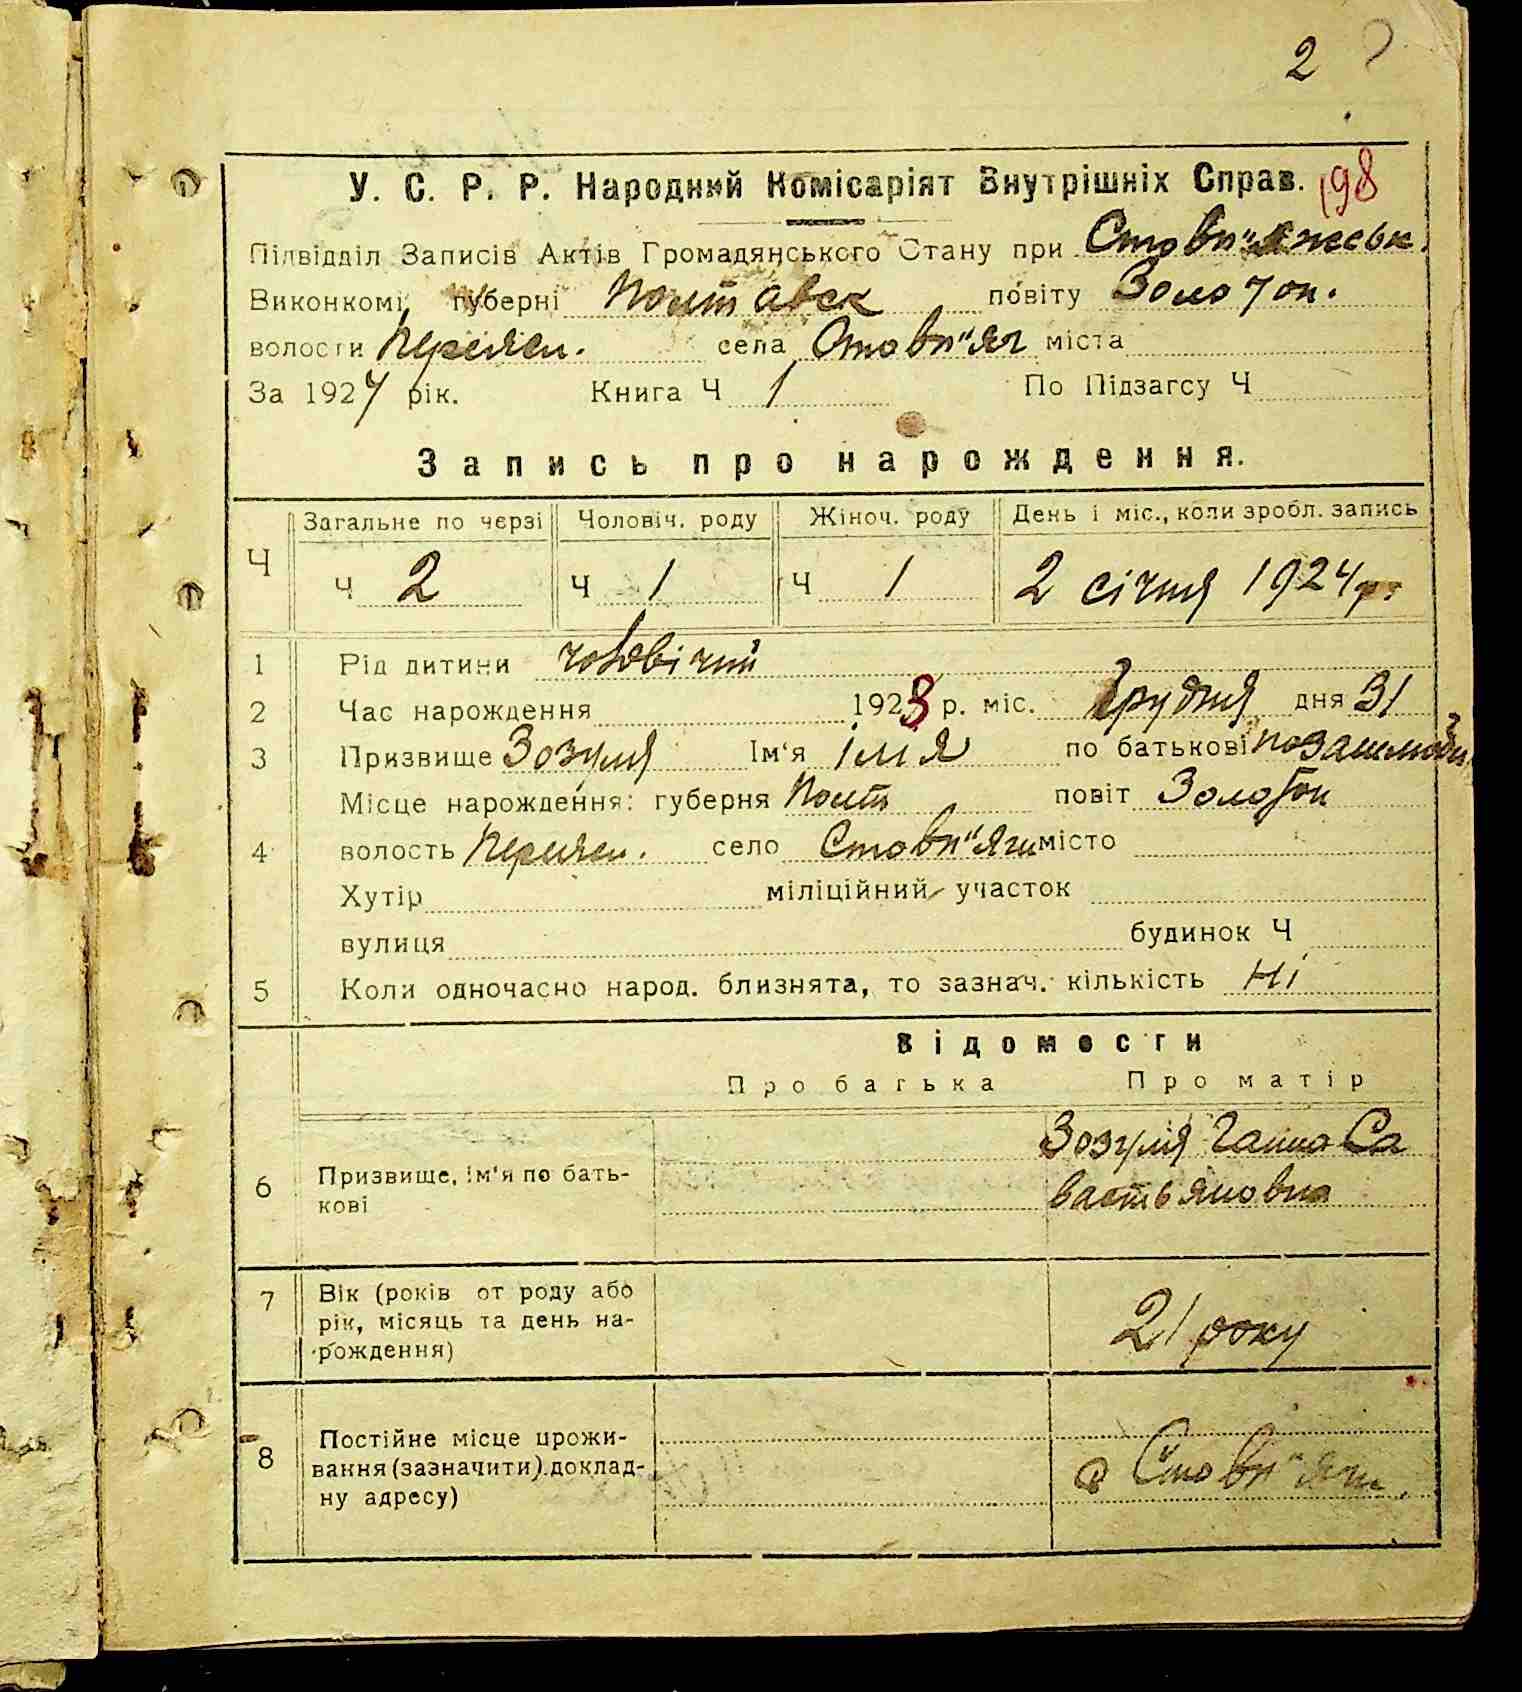 2
198
У. С. Р. Р. Народний Комісаріят Внутрішніх Справ.
Підвідділ Записів Актів Громадянського Стану при Стовп"яжеськ.
Виконкомі губерні Полтавск повіту Золотон.
волости Переясл. села Стовп"яг міста
За 1924 рік. Книга Ч 1 По Підзагсу Ч
Запись про нарождення.
Загальне по черзі Чоловіч. роду Жіноч. роду День і міс., коли зробл. запись
Ч Ч 2 Ч 1 Ч 1 2 січня 1924 р.
1 Рід дитини чоловічий
2 Час нарождення 1923 р. міс. Грудня дня 31
3 Призвище Зозуля Ім'я по батькові
Місце нарождення: губерня Полт повіт Золотон
4 волость Переясл. село Стовп"яги місто
Хутір міліційний участок
вулиця будинок Ч
5 Коли одночасно народ. близнята, то зазнач. кількість Ні
Відомости
Про батька Про матір
6 Призвище, ім'я по бать-
кові
Зозуля Ганна Са
вастьяновна
7 Вік (років от роду або
рік, місяць та день на-
рождення)
21 року
8 Постійне місце прожи-
вання (зазначити) доклад-
ну адресу)
с Стовп"яги.